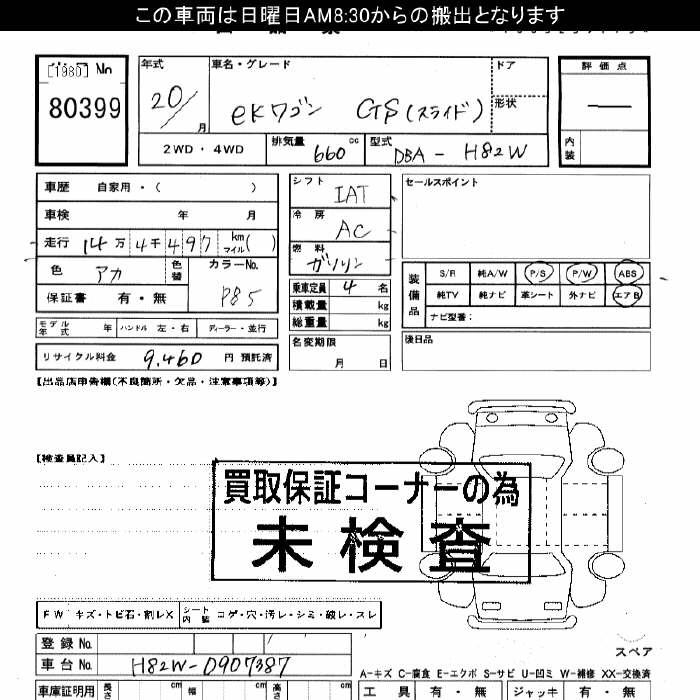 この車両は日曜日AM8:30からの搬出となります
[1980] No
80399
年式
20/
月
車名・グレード
eKワゴン GS(スライド)
ドア
形状
評価点
—
内装
2WD・4WD
排気量
660 cc
型式
DBA - H82W
車歴 自家用・( )
車検 年 月
走行 14万4千497 km マイル( )
色 アカ
色替
カラーNo.
P85
保証書 有・無
モデル年式 年 ハンドル 左・右 ディーラー・並行
リサイクル料金 9,460 円 預託済
シフト
IAT
冷房
AC
燃料
ガソリン
乗車定員 4 名
積載量 kg
総重量 kg
名変期限
月 日
セールスポイント
装備品
S/R 純A/W P/S P/W ABS
純TV 純ナビ 革シート 外ナビ エアB
ナビ型番:
後日品
【出品店申告欄(不良箇所・欠品・注意事項等)】
【検査員記入】
買取保証コーナーの為
未検査
FW キズ・トビ石・割レX
シート内装 コゲ・穴・汚レ・シミ・破レ・スレ
登録No.
車台No. H82W-0907387
スペア
A-キズ C-腐食 E-エクボ S-サビ U-凹ミ W-補修 XX-交換済
車庫証明用 長さ cm 幅 cm 高さ cm
工具 有・無 ジャッキ 有・無